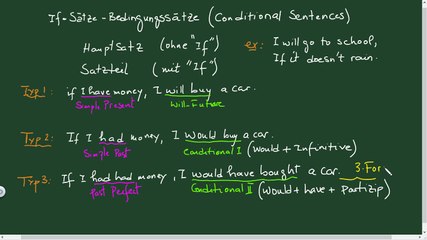 If-Sätze-Bedingungssätze (Conditional Sentences)
Hauptsatz (ohne "If") ex: I will go to school,
Satzteil (mit "If") If it doesn't rain.
Typ 1: if I have money, I will buy a car.
Simple Present Will-Future
Typ 2: If I had money, I would buy a car.
Simple Past Conditional I (would + Infinitive)
Typ 3: If I had had money, I would have bought a car. 3.For
Past Perfect Conditional II (would + have + Partizip)